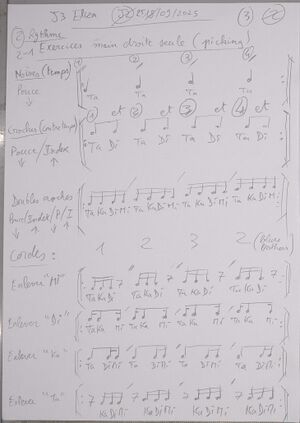 J3 Elken 25/8/09/2025 3
2 Rythme
2-1 Exercices main droite seule (picking)
Noires (temps) 1 2 3 4
Pouce Ta Ta Ta Ta
↓
1 et 2 et 3 et 4 et
Croches (contretemps)
Pouce/Index Ta Di Ta Di Ta Di Ta Di
↓ ↑
Doubles croches
Pouce/Index/P/I Ta Ka Di Mi Ta Ka Di Mi Ta Ka Di Mi Ta Ka Di Mi
↓ ↑ ↓ ↑
Cordes : 1 2 3 2
Enlever "Mi" Ta Ka Di Ta Ka Di Ta Ka Di Ta Ka Di
Enlever "Di" Ta Ka Mi Ta Ka Mi Ta Ka Mi Ta Ka Mi
Enlever "Ka" Ta Di Mi Ta Di Mi Ta Di Mi Ta Di Mi
Enlever "Ta" Ka Di Mi Ka Di Mi Ka Di Mi Ka Di Mi